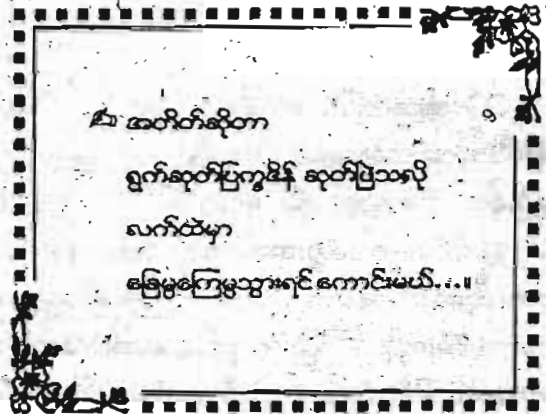 ✍ အတိတ်ဆိုတာ
ရွက်ဆုတ်ပြက္ခဒိန် ဆုတ်ဖြဲသလို
လက်ထဲမှာ
ခြေမွကြေမွသွားရင် ကောင်းမယ်...။